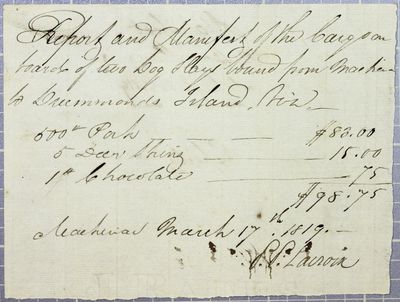 Report and Manifest of the Cargo on
board of two Dog Slays bound from Mackina
to Drummonds Island, Viz.
500 lb Pork $83.00
5 Deer Skins 15.00
1 lb Chocolate 75
$98.75
Mackinac March 17th 1819.
Lacroix